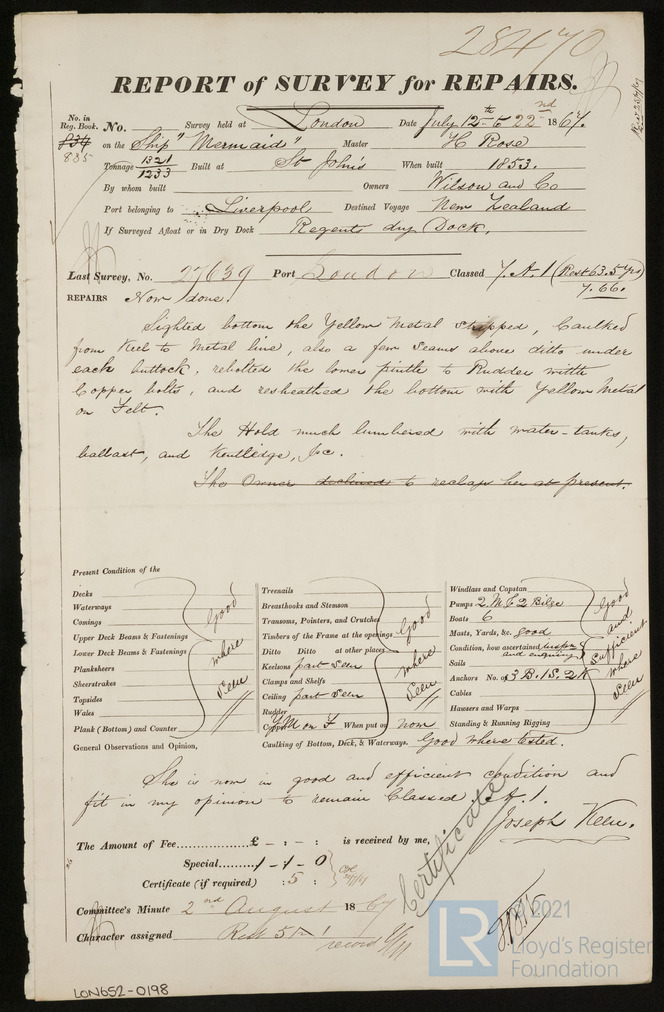 28470
REPORT of SURVEY for REPAIRS.
No. in Reg. Book.
834
835
No. Survey held at London Date July 12th to 22nd 1867.
on the Ship "Mermaid" Master H Rose
Tonnage 1321 / 1233 Built at St John's When built 1853.
By whom built Owners Wilson and Co
Port belonging to Liverpool Destined Voyage New Zealand
If Surveyed Afloat or in Dry Dock Regents dry Dock.
Last Survey, No. 27639 Port London Classed 7. A. 1 (Rest 63. 5 yrs)
7. 66.
REPAIRS Now done.
Sighted bottom the Yellow Metal stripped, Caulked
from Keel to Metal line, also a few seams above ditto under
each buttock, rebolted the lower pintle to Rudder with
Copper bolts, and resheathed the bottom with Yellow Metal
on Felt.
The Hold much lumbered with water-tanks,
ballast, and Kentledge, &c.
The Owner declined to reclass her at present.
Present Condition of the
Decks
Waterways
Comings
Upper Deck Beams & Fastenings
Lower Deck Beams & Fastenings
Planksheers
Sheerstrakes
Topsides
Wales
Plank (Bottom) and Counter
Good where seen
Treenails
Breasthooks and Stemson
Transoms, Pointers, and Crutches
Timbers of the Frame at the openings
Ditto Ditto at other places
Keelsons part seen
Clamps and Shelfs
Ceiling part seen
Rudder
Copper Y.M on F When put on now
Good where seen
Windlass and Capstan
Pumps 2. M. & 2 Bilge
Boats 6
Masts, Yards, &c. good
Condition, how ascertained inspn and enquiry
Sails
Anchors No. of 3 B. 1 S. 2 K
Cables
Hawsers and Warps
Standing & Running Rigging
Good and sufficient where seen
General Observations and Opinion, Caulking of Bottom, Deck, & Waterways. Good where tested.
She is now in good and efficient condition and
fit in my opinion to remain Classed A. 1.
Joseph Keen.
The Amount of Fee £ - : - : is received by me,
Special 1 - 1 - 0
Certificate (if required) : 5 :
Certificate
Committee's Minute 2nd August 1867
Character assigned Rest 5 A 1
record
© 2021
LR
Lloyd's Register
Foundation
LON652-0198